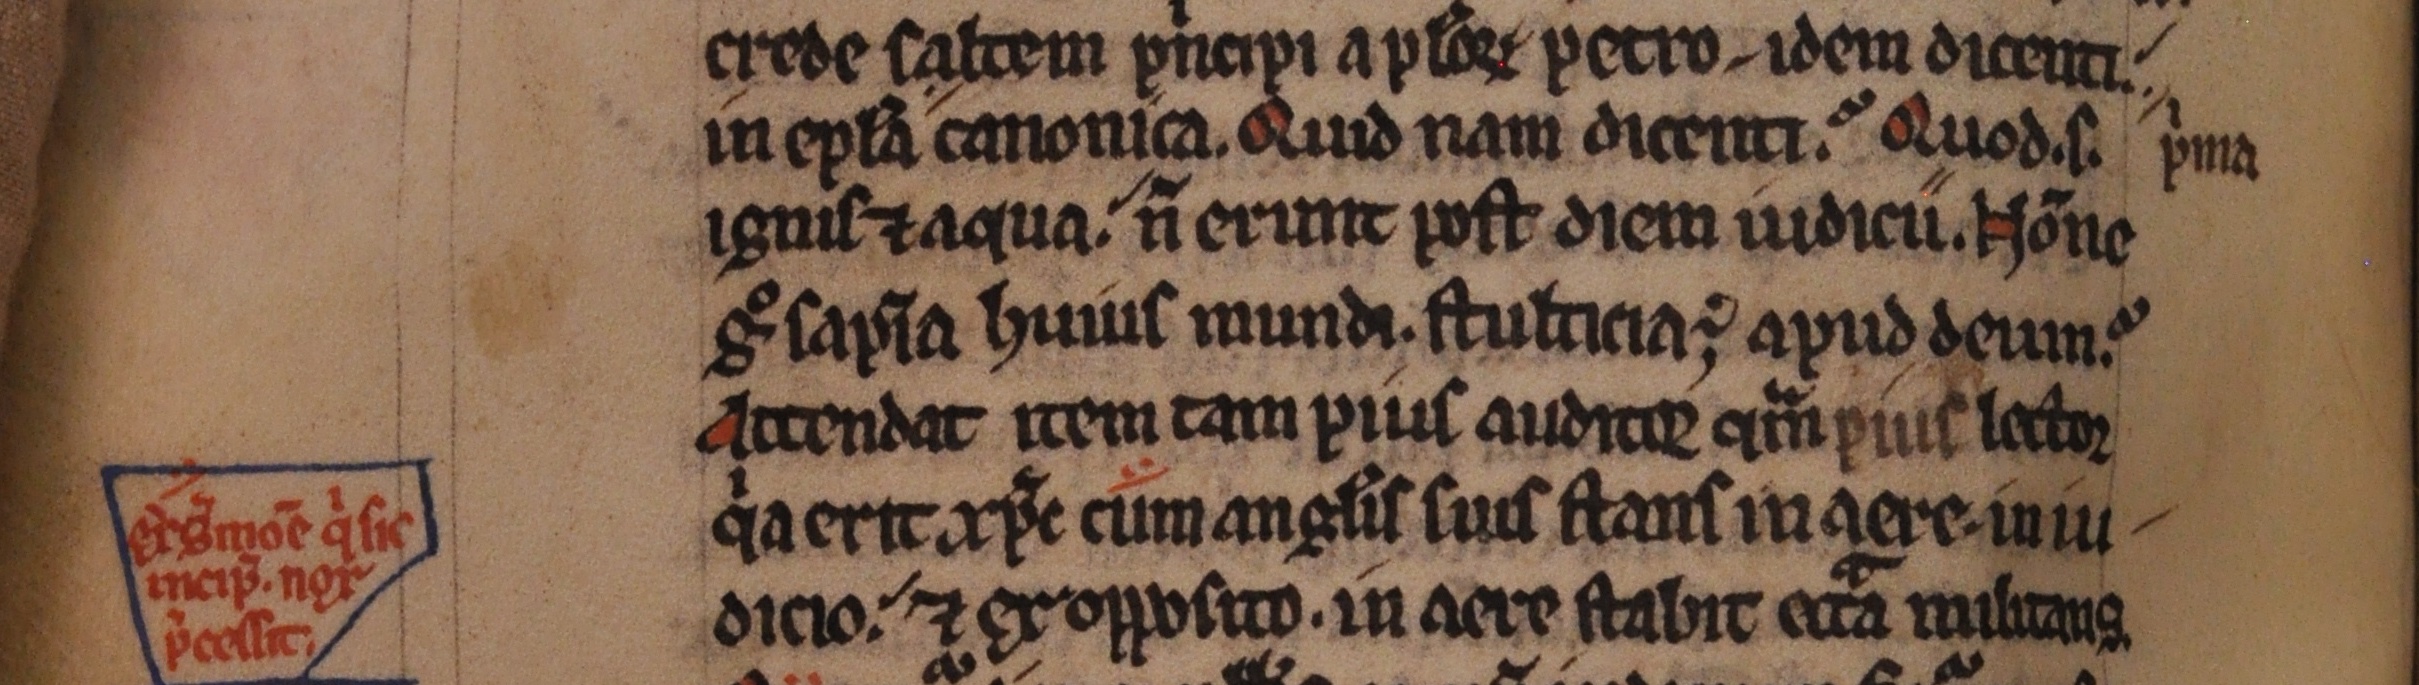 crede saltem pͥncipi apl̃oꝝ petro, idem dicenti.
in ep̃la canonica. Quid nam dicenti? Quod .s.
pͥma
ignis ⁊ aqua. ñ erunt post diem iudicii. Nõne
gͦ sapĩa huius mundi. stulticia ẽ apud deum?
Attendat item tam pius auditor qͣm pius lector
qͥa erit xp̃c cum angl̃is suis stans in aere, in iu
dicio. ⁊ ex opposito. in aere stabit ecc̃a militans.
sͬmõe qͥ sic
incip̃. nox
p̃cessit.